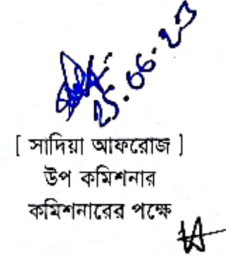 25.06.23
[ সাদিয়া আফরোজ ]
উপ কমিশনার
কমিশনারের পক্ষে